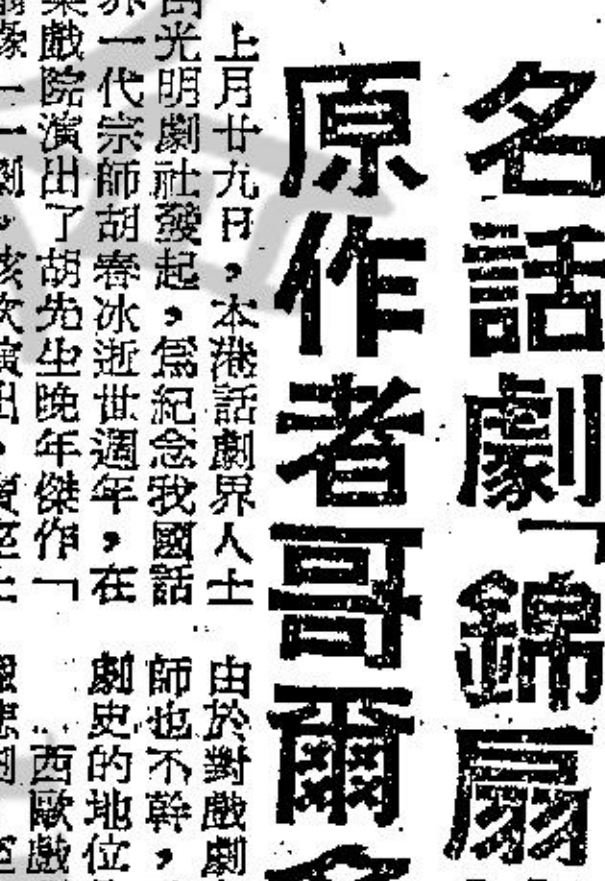 名話劇「錦扇
原作者哥爾
上月廿九日，本港話劇界人士
光明劇社發起，為紀念我國話
一代宗師胡春冰逝世週年，在
戲院演出了胡先生晚年傑作「
由於對戲劇
師也不幹，
劇史的地位
西歐戲